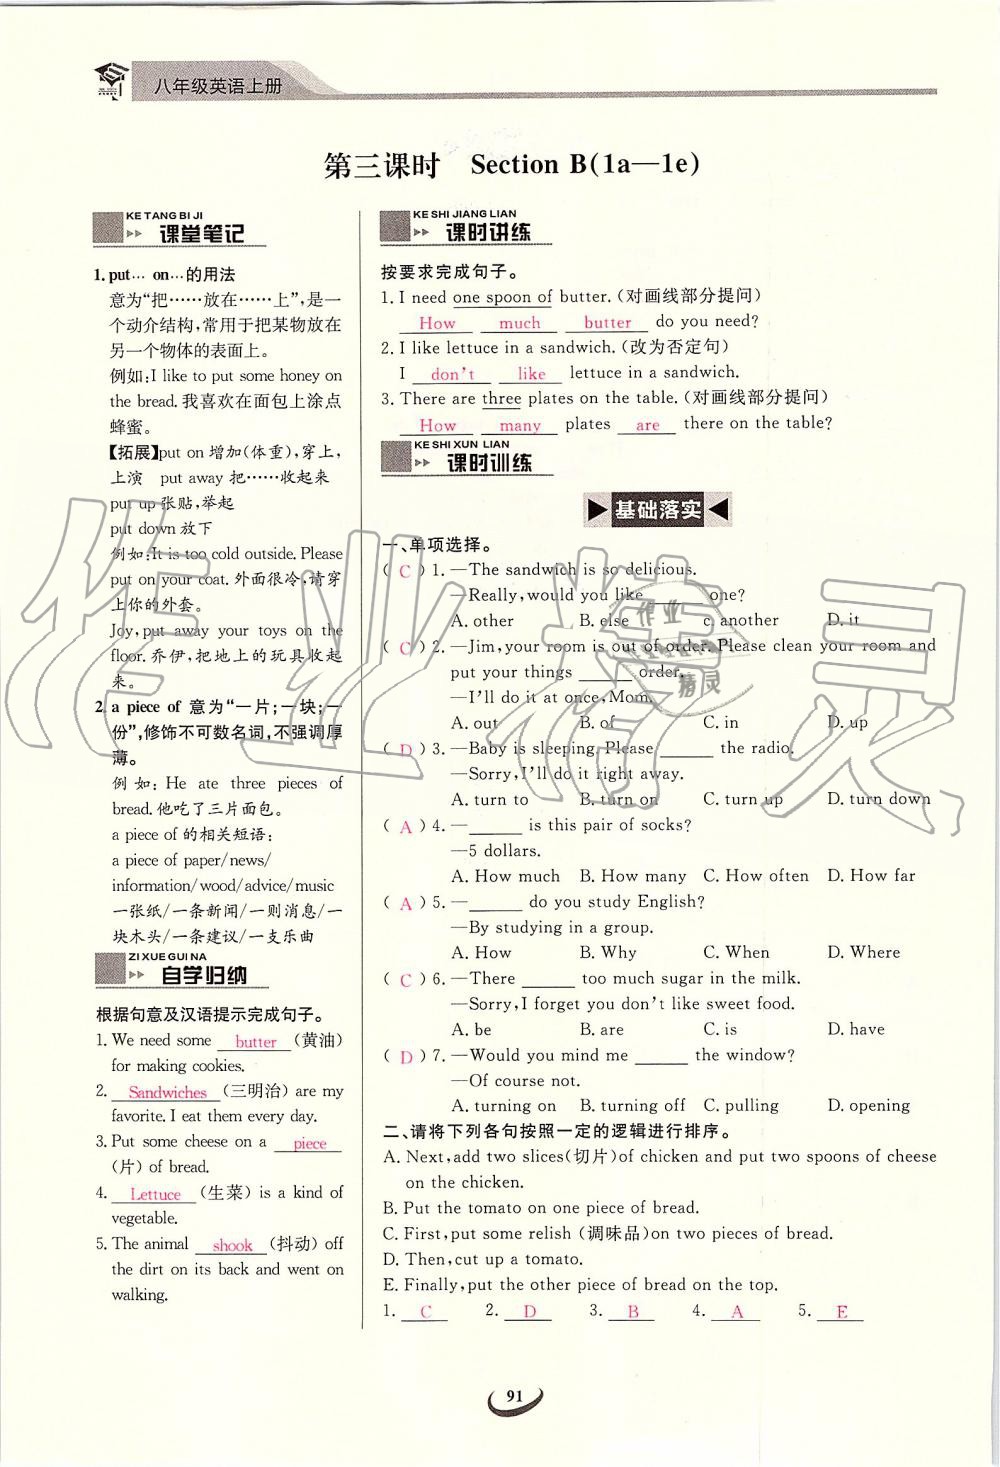 八年级英语上册
第三课时 Section B(1a—1e)
KE TANG BI JI
课堂笔记
1. put… on…的用法
意为“把……放在……上”,是一
个动介结构,常用于把某物放在
另一个物体的表面上。
例如:I like to put some honey on
the bread.我喜欢在面包上涂点
蜂蜜。
【拓展】put on 增加(体重),穿上,
上演 put away 把……收起来
put up 张贴,举起
put down 放下
例如:It is too cold outside. Please
put on your coat. 外面很冷,请穿
上你的外套。
Joy, put away your toys on the
floor. 乔伊,把地上的玩具收起
来。
2. a piece of 意为“一片;一块;一
份”,修饰不可数名词,不强调厚
薄。
例如: He ate three pieces of
bread.他吃了三片面包。
a piece of 的相关短语:
a piece of paper/news/
information/wood/advice/music
一张纸/一条新闻/一则消息/一
块木头/一条建议/一支乐曲
ZI XUE GUI NA
自学归纳
根据句意及汉语提示完成句子。
1. We need some butter (黄油)
for making cookies.
2. Sandwiches (三明治) are my
favorite. I eat them every day.
3. Put some cheese on a piece
(片) of bread.
4. Lettuce (生菜) is a kind of
vegetable.
5. The animal shook (抖动) off
the dirt on its back and went on
walking.
KE SHI JIANG LIAN
课时讲练
按要求完成句子。
1. I need one spoon of butter. (对画线部分提问)
How much butter do you need?
2. I like lettuce in a sandwich. (改为否定句)
I don't like lettuce in a sandwich.
3. There are three plates on the table. (对画线部分提问)
How many plates are there on the table?
KE SHI XUN LIAN
课时训练
基础落实
一、单项选择。
( C )1. —The sandwich is so delicious.
—Really, would you like ______ one?
A. other B. else c. another D. it
( C )2. —Jim, your room is out of order. Please clean your room and
put your things ______ order.
—I'll do it at once, Mom.
A. out B. of C. in D. up
( D )3. —Baby is sleeping. Please ______ the radio.
—Sorry, I'll do it right away.
A. turn to B. turn on C. turn up D. turn down
( A )4. —______ is this pair of socks?
—5 dollars.
A. How much B. How many C. How often D. How far
( A )5. —______ do you study English?
—By studying in a group.
A. How B. Why C. When D. Where
( C )6. —There ______ too much sugar in the milk.
—Sorry, I forget you don't like sweet food.
A. be B. are C. is D. have
( D )7. —Would you mind me ______ the window?
—Of course not.
A. turning on B. turning off C. pulling D. opening
二、请将下列各句按照一定的逻辑进行排序。
A. Next, add two slices(切片)of chicken and put two spoons of cheese
on the chicken.
B. Put the tomato on one piece of bread.
C. First, put some relish (调味品)on two pieces of bread.
D. Then, cut up a tomato.
E. Finally, put the other piece of bread on the top.
1. C 2. D 3. B 4. A 5. E
91
作业精灵
作业
精灵